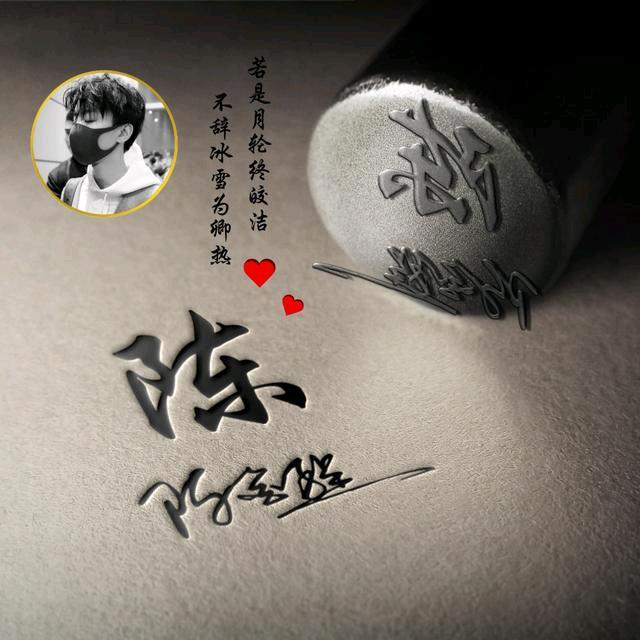 若是月轮终皎洁
不辞冰雪为卿热
陈